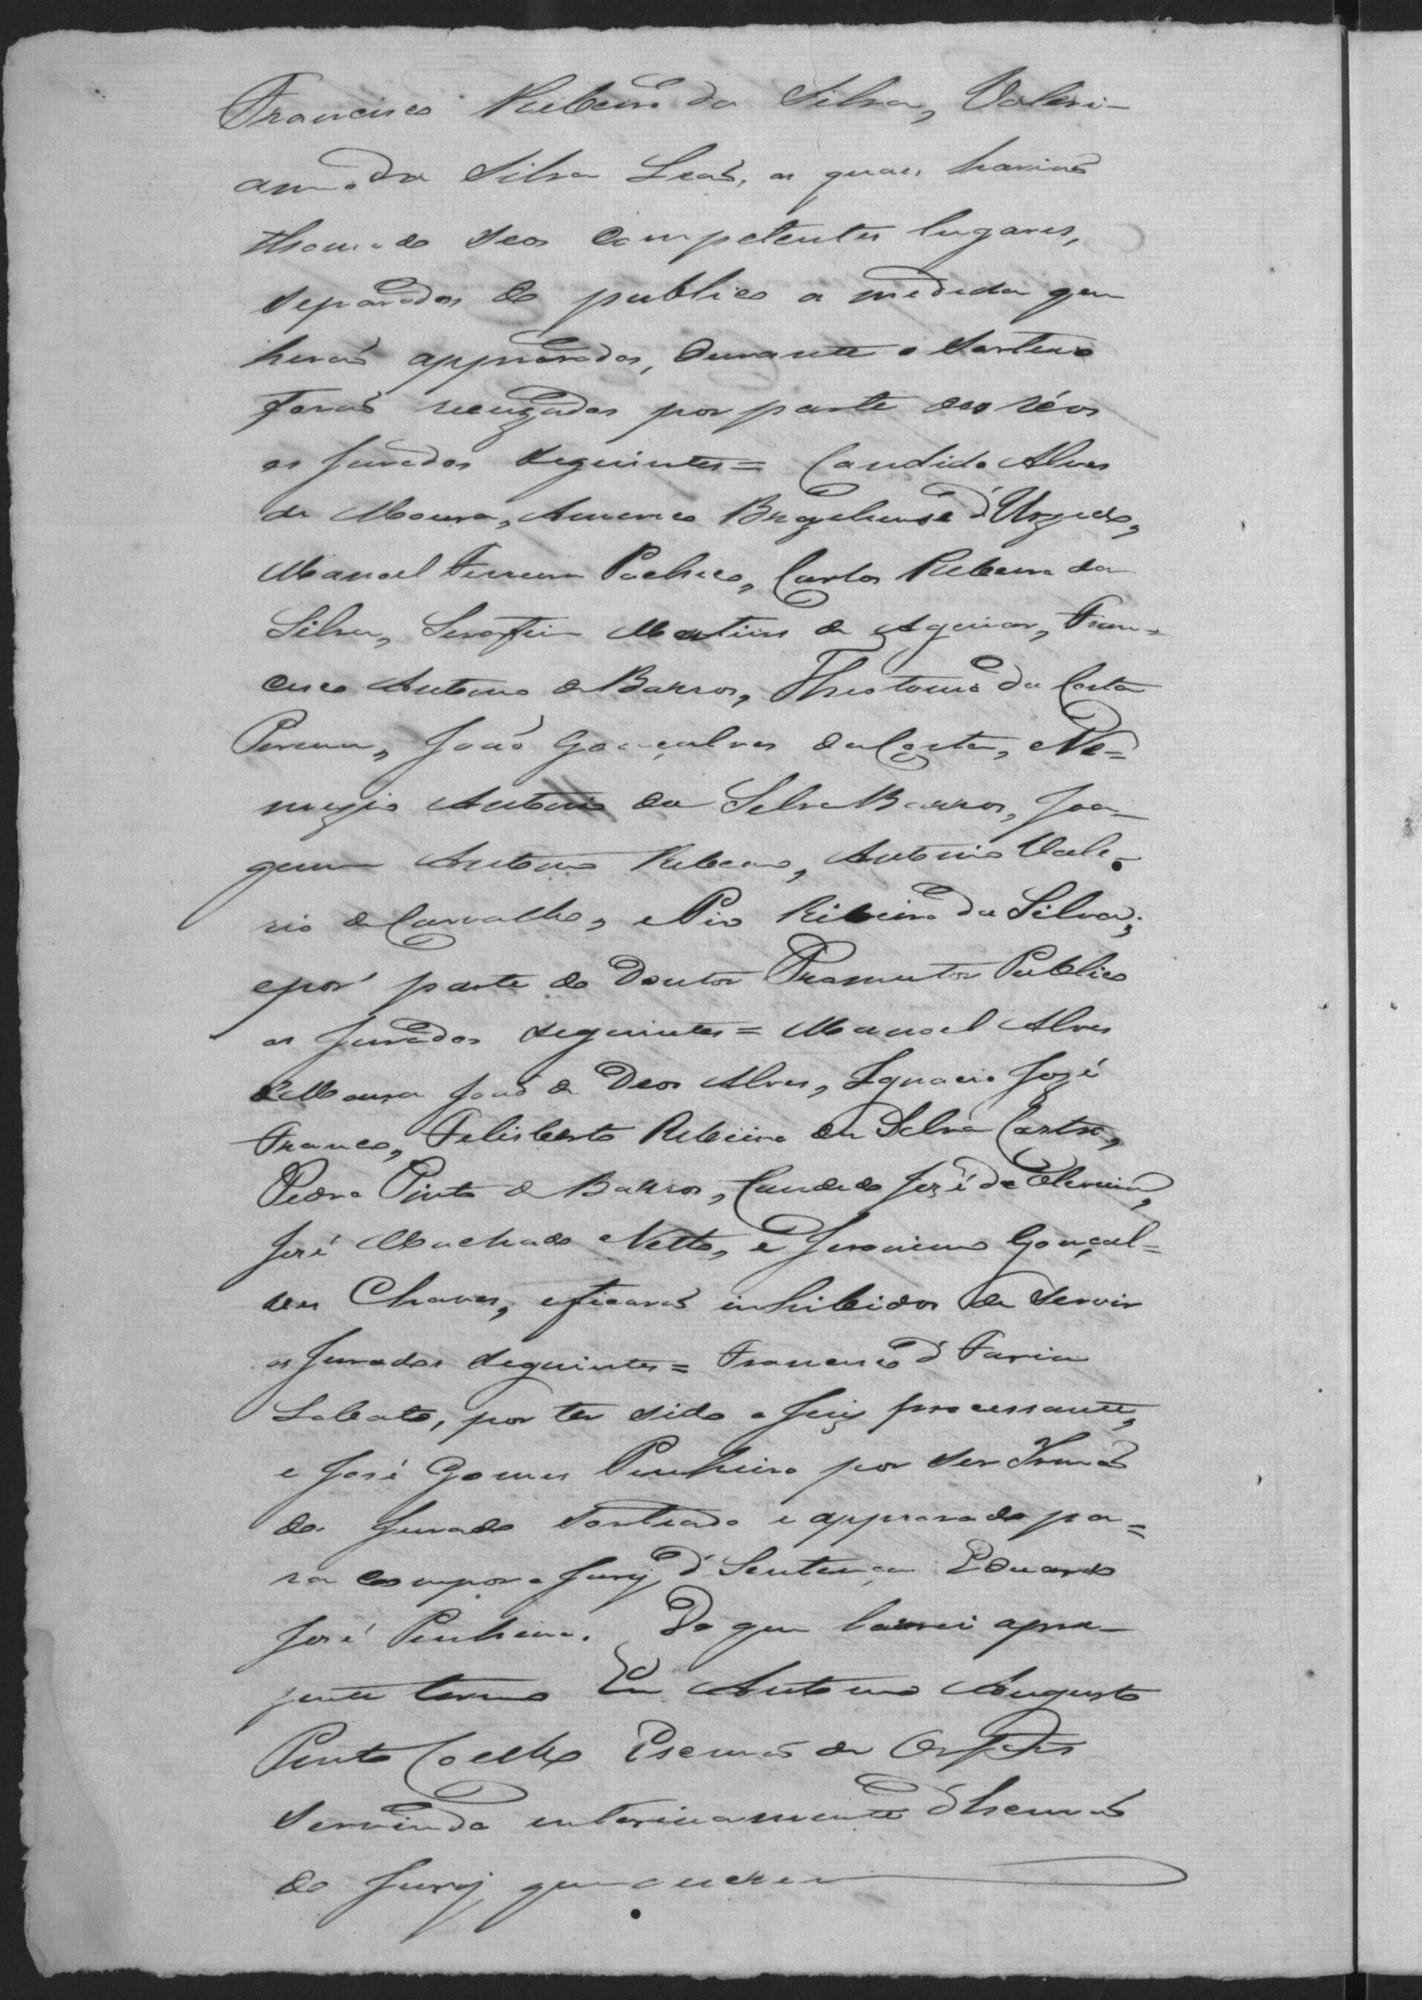 Francisco Ribeiro da Silva, Valeri-
anno da Silva Leaõ, os quaes haviaõ
thomado seos competentes lugares,
separados do publico a medida que
heraõ approvados, durante o sorteio
foraõ recuzados por parte dos réos
os jurados seguintes = Candido Alves
de Moura, Americo Brazeliense d'Urzedo,
Manoel Ferreira Pacheco, Carlos Ribeiro da
Silva, Serafim Martins de Aguiar, Fran-
cisco Antonio de Barros, Theotonio da Costa
Pereira, João Gonçalves da Costa, Ne=
mezio Antonio da Silva Barros, Joa-
quim Antonio Ribeiro, Antonio Vale-
rio de Carvalho, e Pio Ribeiro da Silva;
e por parte do Doutor Promutor Publico
os jurados seguintes = Manoel Alves
de Moura João de Deos Alves, Ignacio Jozé
Franco, Felisberto Ribeiro da Silva Castro,
Pedro Pinto de Barros, Candido Jozé de Oliveira,
José Machado Netto, e Jeronimo Gonçal=
ves Chaves, e ficaraõ inhibidos de servir
os jurados seguintes = Francisco d'Faria
Lobato, por ter sido o Juiz processante,
e José Gomes Pinheiro por ser Irmaõ
do Jurado sorteado e approvado pa=
ra compor o Jury d'Sentença Eduardo
José Pinheiro. Do que lavrei o pre-
zente termo Eu Antonio Augusto
Pinto Coelho Escrivaõ de Orfaõs
servindo interinamente d'Escrivaõ
do Jury que escrevi